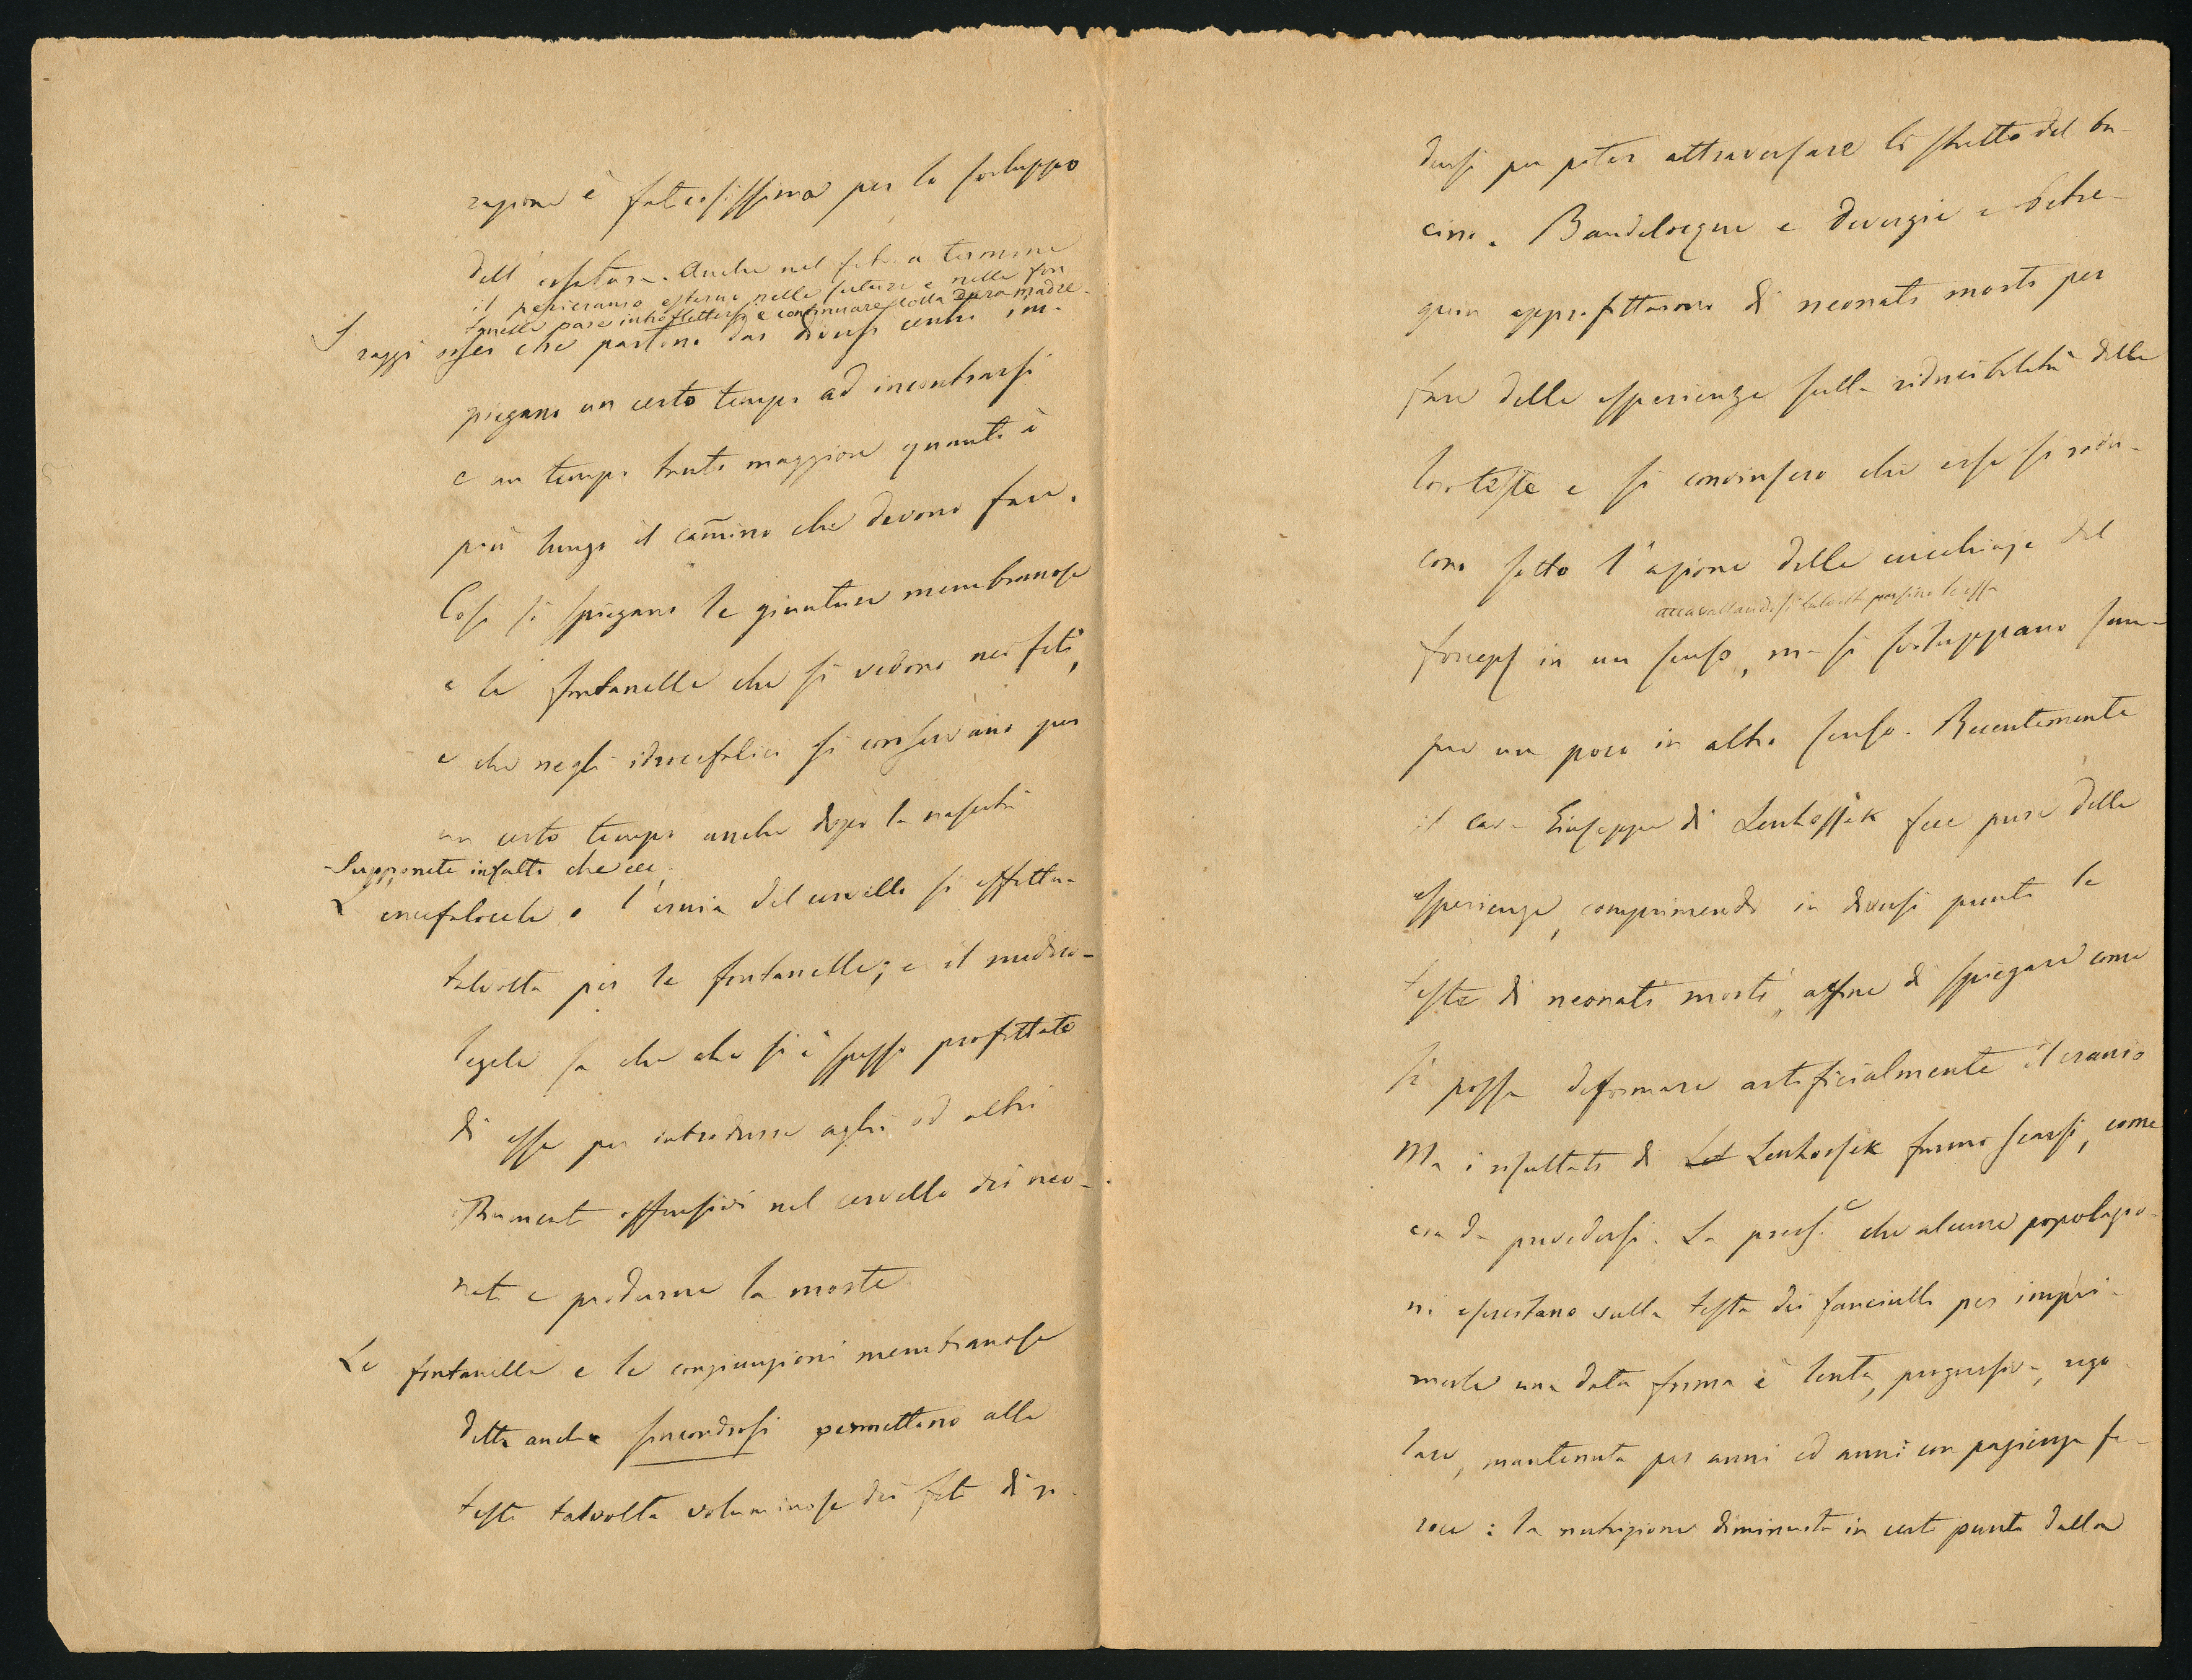 razione è faticosissima per lo sviluppo
dell'ossatura. Anche nel feto a termine
il pericranio esterno nelle suture e nelle fon
tanelle pare introflettersi e continuare colla dura madre.
I raggi ossei che partono dai diversi centri im-
piegano un certo tempo ad incontrarsi
e un tempo tanto maggiore quanto è
più lungo il cam̄ino che devono fare.
Così si spiegano le giunture membranose
e le fontanelle che si vedono nei feti,
e che negli idrocefalici si conservano per
un certo tempo anche dopo la nascita
Supponete infatti che
L'encefalocele o l'ernia del cervello si effettua
talvolta per le fontanelle; e il medico-
legale sa che che si è spesso profittato
di esse per introdurre aghi od altri
strumenti offensivi nel cervello dei neo-
nati e produrne la morte
Le fontanelle e le congiunzioni membranose
dette anche sincondrosi permettono alle
teste talvolta voluminose dei feti di ri
dursi per poter attraversare lo stretto del ba-
cino. Baudelocque e Devergie a bella
posta approfittarono di neonati morti per
fare delle esperienze sulla riducibilità delle
loro teste e si convinsero che esse si ridu-
cono sotto l'azione delle cucchiaje del
accavallandosi talvolta persino le ossa
forceps in un senso, ma si sviluppano sem-
pre un poco in altro senso. Recentemente
il cav. Giuseppe di Lenhossék fece pure delle
esperienze, comprimendo in diversi punti le
teste di neonati morti, affine di spiegare come
si possa deformare artificialmente il cranio
Ma i risultati di Lenhossek furono scarsi, come
era da prevedersi. La press.e che alcune popolazio-
ni esercitano sulla testa dei fanciulli per impri-
merle una data forma è lenta, progressiva, rego
lare, mantenuta per anni ed anni con pazienza fe-
roce: la nutrizione diminuita in certi punti dalla